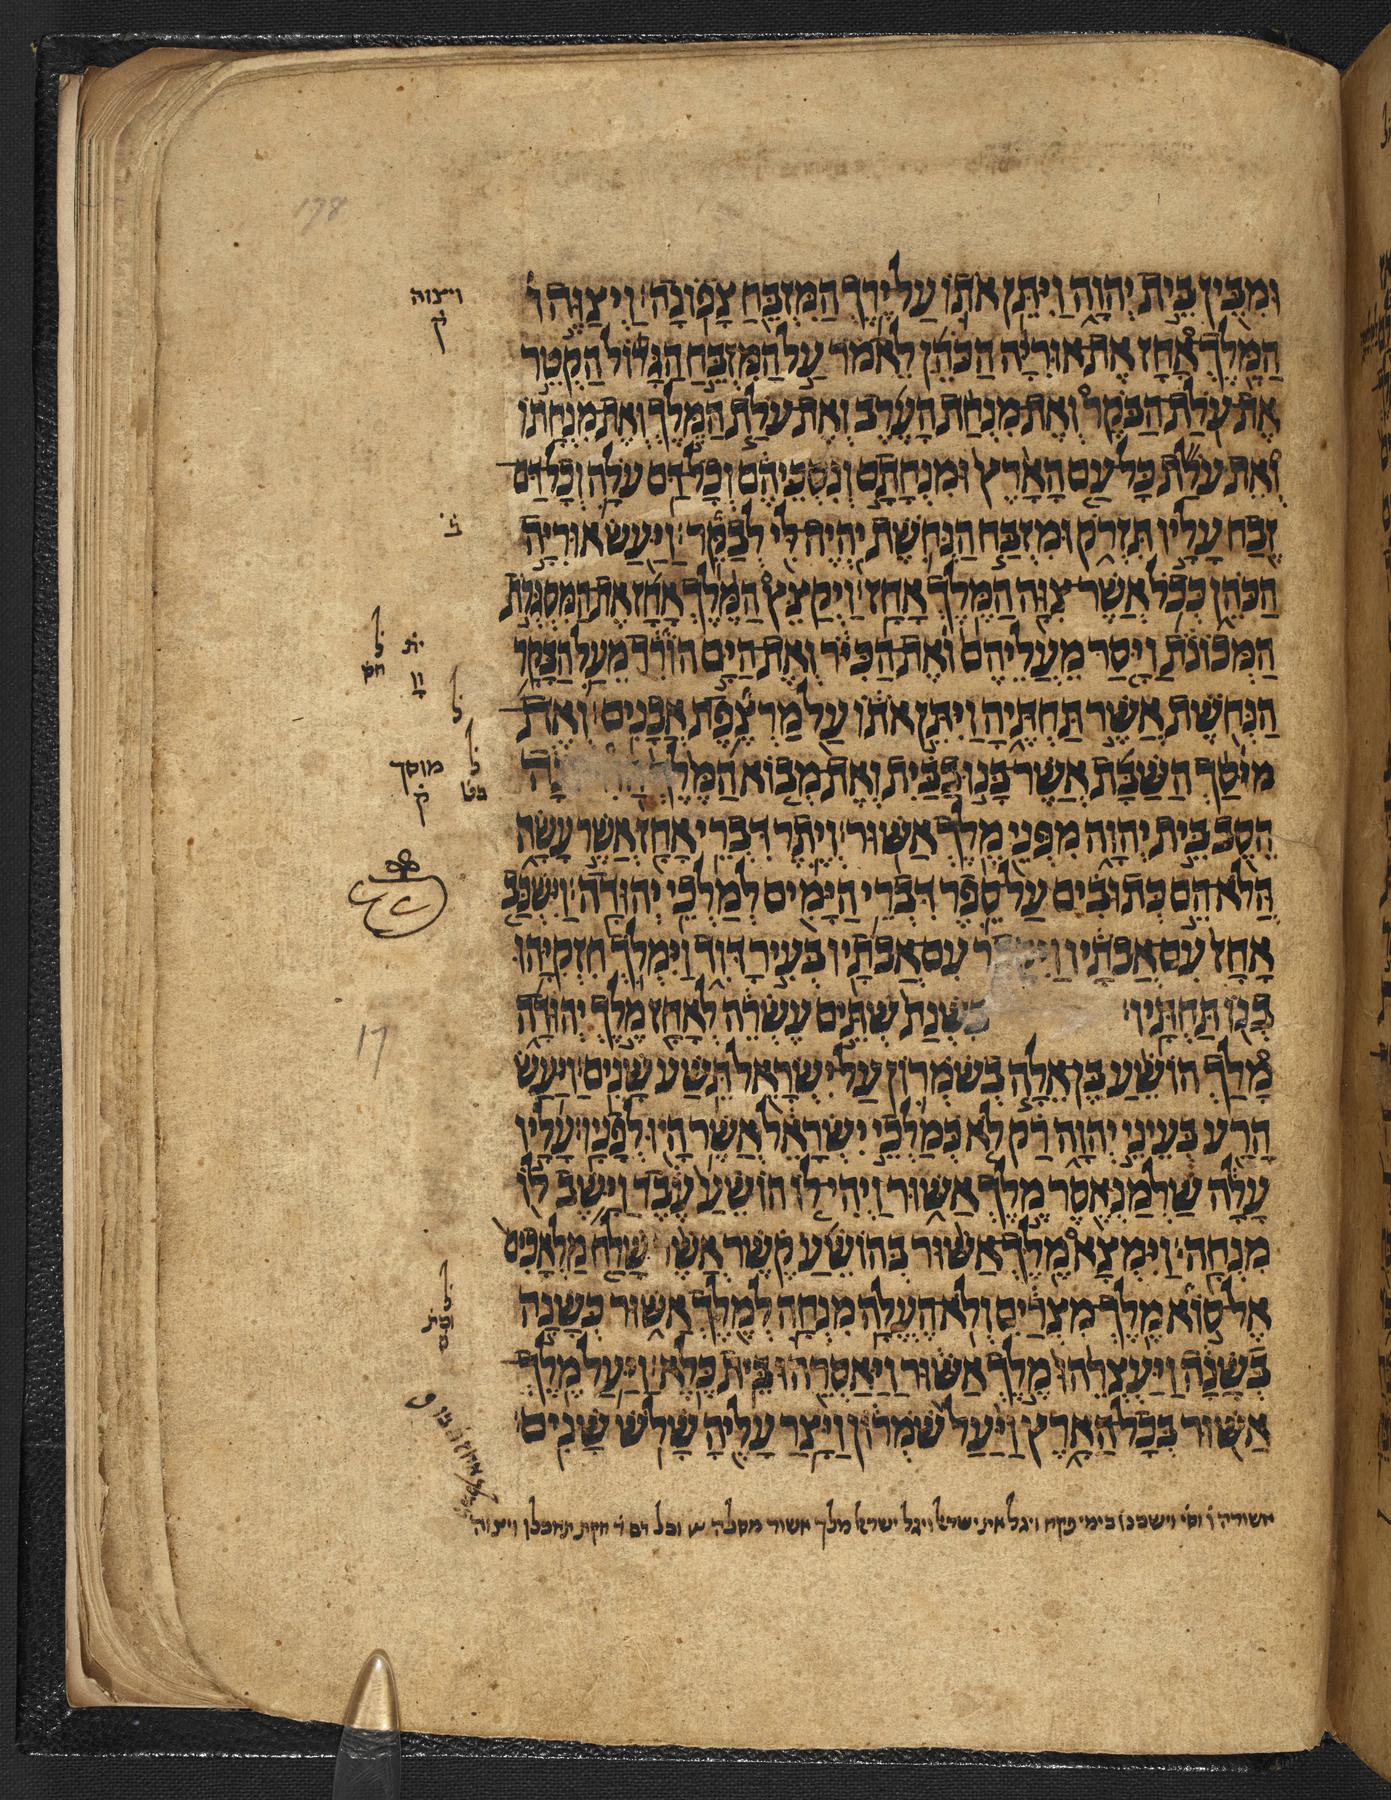 178
וּמִבֵּין בֵּית יְהוָה וַיִּתֵּן אֹתוֹ עַל יֶרֶךְ הַמִּזְבֵּחַ צָפוֹנָה׃ וַיְצַוֵּהוּ
ויצוה
ק
הַמֶּלֶךְ אָחָז אֶת אוּרִיָּה הַכֹּהֵן לֵאמֹר עַל הַמִּזְבֵּחַ הַגָּדוֹל הַקְטֵר
אֶת עֹלַת הַבֹּקֶר וְאֶת מִנְחַת הָעֶרֶב וְאֶת עֹלַת הַמֶּלֶךְ וְאֶת מִנְחָתוֹ
וְאֵת עֹלַת כָּל עַם הָאָרֶץ וּמִנְחָתָם וְנִסְכֵּיהֶם וְכָל דַּם עֹלָה וְכָל דַּם
זֶבַח עָלָיו תִּזְרֹק וּמִזְבַּח הַנְּחֹשֶׁת יִהְיֶה לִּי לְבַקֵּר׃ וַיַּעַשׂ אוּרִיָּה
הַכֹּהֵן כְּכֹל אֲשֶׁר צִוָּה הַמֶּלֶךְ אָחָז׃ וַיְקַצֵּץ הַמֶּלֶךְ אָחָז אֶת הַמִּסְגְּרֹת
הַמְּכוֹנֹת וַיָּסַר מֵעֲלֵיהֶם וְאֶת הַכִּיֹּר וְאֶת הַיָּם הוֹרִד מֵעַל הַבָּקָר
הַנְּחֹשֶׁת אֲשֶׁר תַּחְתֶּיהָ וַיִּתֵּן אֹתוֹ עַל מַרְצֶפֶת אֲבָנִים׃ וְאֶת
מוּסַךְ הַשַּׁבָּת אֲשֶׁר בָּנוּ בַבַּיִת וְאֶת מְבוֹא הַמֶּלֶךְ
מוסך
ק
הֵסֵב בֵּית יְהוָה מִפְּנֵי מֶלֶךְ אַשּׁוּר׃ וְיֶתֶר דִּבְרֵי אָחָז אֲשֶׁר עָשָׂה
הֲלֹא הֵם כְּתוּבִים עַל סֵפֶר דִּבְרֵי הַיָּמִים לְמַלְכֵי יְהוּדָה׃ וַיִּשְׁכַּב
אָחָז עִם אֲבֹתָיו וַיִּקָּבֵר עִם אֲבֹתָיו בְּעִיר דָּוִד וַיִּמְלֹךְ חִזְקִיָּהוּ
בְנוֹ תַּחְתָּיו׃ בִּשְׁנַת שְׁתֵּים עֶשְׂרֵה לְאָחָז מֶלֶךְ יְהוּדָה
17
מָלַךְ הוֹשֵׁעַ בֶּן אֵלָה בְשֹׁמְרוֹן עַל יִשְׂרָאֵל תֵּשַׁע שָׁנִים׃ וַיַּעַשׂ
הָרַע בְּעֵינֵי יְהוָה רַק לֹא כְּמַלְכֵי יִשְׂרָאֵל אֲשֶׁר הָיוּ לְפָנָיו׃ עָלָיו
עָלָה שַׁלְמַנְאֶסֶר מֶלֶךְ אַשּׁוּר וַיְהִי לוֹ הוֹשֵׁעַ עֶבֶד וַיָּשֶׁב לוֹ
מִנְחָה׃ וַיִּמְצָא מֶלֶךְ אַשּׁוּר בְּהוֹשֵׁעַ קֶשֶׁר אֲשֶׁר שָׁלַח מַלְאָכִים
אֶל סוֹא מֶלֶךְ מִצְרַיִם וְלֹא הֶעֱלָה מִנְחָה לְמֶלֶךְ אַשּׁוּר כְּשָׁנָה
בְשָׁנָה וַיַּעַצְרֵהוּ מֶלֶךְ אַשּׁוּר וַיַּאַסְרֵהוּ בֵּית כֶּלֶא׃ וַיַּעַל מֶלֶךְ
אַשּׁוּר בְּכָל הָאָרֶץ וַיַּעַל שֹׁמְרוֹן וַיָּצַר עָלֶיהָ שָׁלֹשׁ שָׁנִים׃